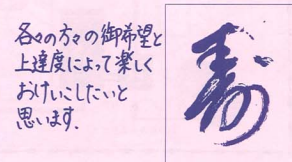 各々の方々の御希望と
上達度によって楽しく
おけいこしたいと
思います.
寿